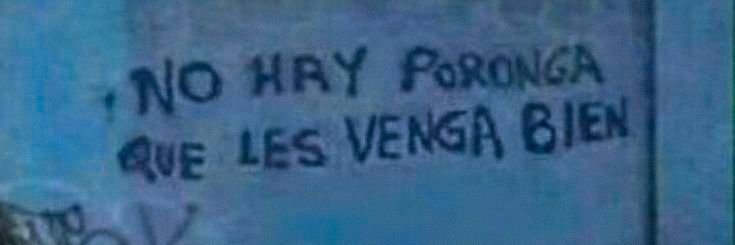 NO HAY PORONGA
QUE LES VENGA BIEN